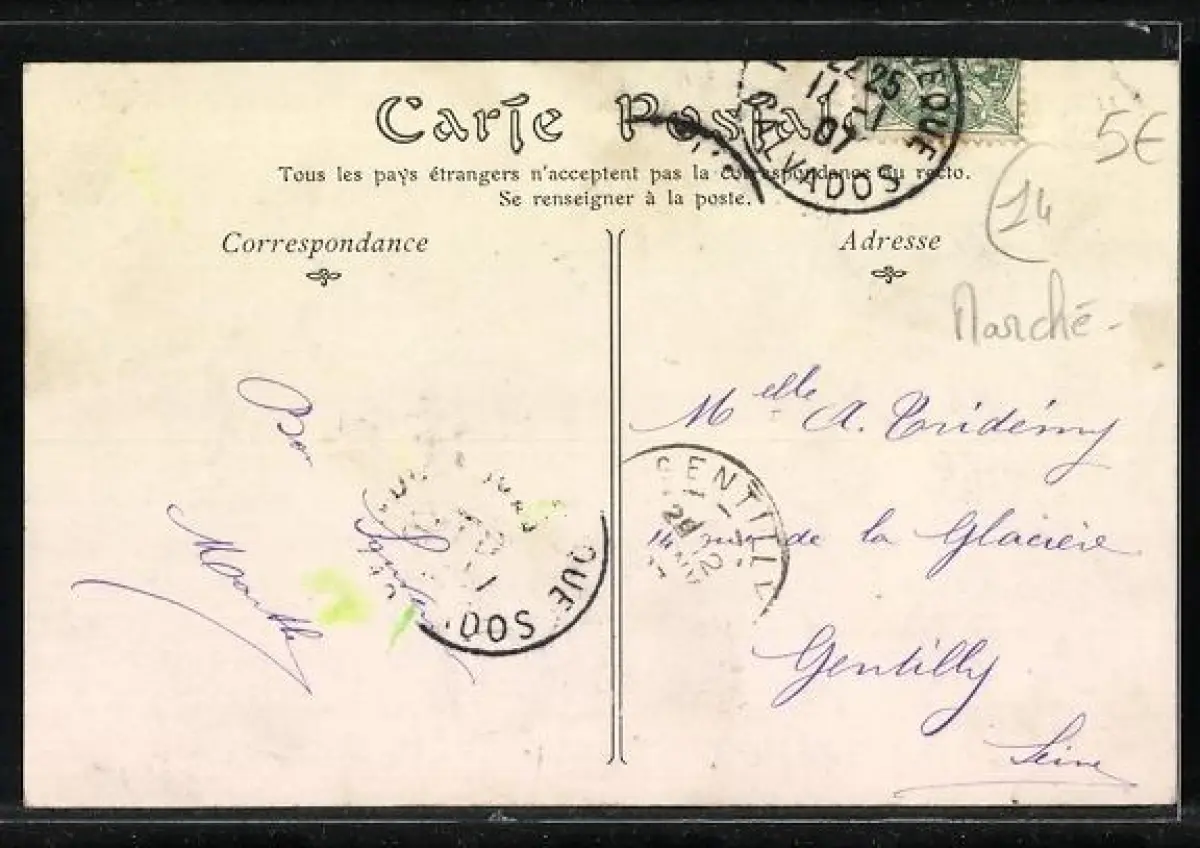 Carte Postale
Tous les pays étrangers n'acceptent pas la correspondance au recto.
Se renseigner à la poste.
Correspondance
Adresse
22 25
11 - 1
07
CALVADOS
5€
14
Marché -
Bon
Souvenir
Marthe
Melle A. Tridémy
14 rue de la Glacière
Gentilly
Seine
GENTILLY
QUE
DOS